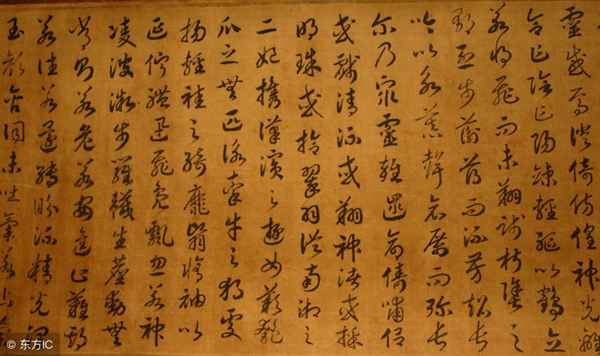 靈感焉徙倚傍徨神光離
合乍陰乍陽竦輕軀以鶴立
若將飛而未翔踐椒塗之
郁烈步蘅薄而流芳超長
吟以永慕聲哀厲而彌長
爾乃眾靈雜遝命儔嘯侶
或戲清流或翔神渚或採
明珠或拾翠羽從南湘之
二妃攜漢濱之遊女歎匏
瓜之無匹詠牽牛之獨處
揚輕袿之猗靡翳脩袖以
延佇體迅飛鳧飄忽若神
凌波微步羅襪生塵動無
常則若危若安進止難期
若往若還轉眄流精光潤
玉顏含詞未吐氣若
© 东方IC